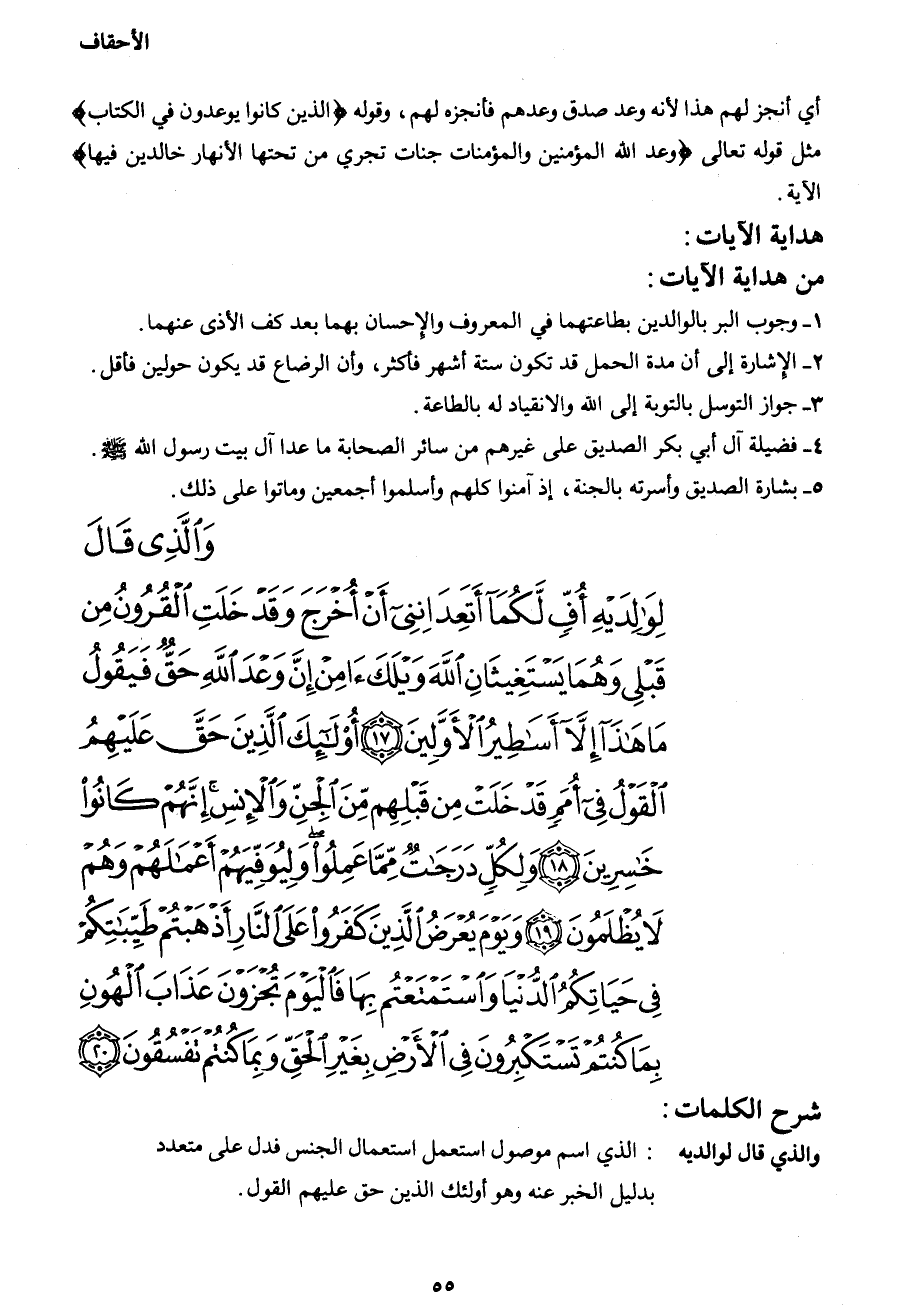 الأحقاف
أي أنجز لهم هذا لأنه وعد صدق وعدهم فأنجزه لهم، وقوله ﴿الذين كانوا يوعدون في الكتاب﴾
مثل قوله تعالى ﴿وعد الله المؤمنين والمؤمنات جنات تجري من تحتها الأنهار خالدين فيها﴾
الآية.
هداية الآيات:
من هداية الآيات:
١ـ وجوب البر بالوالدين بطاعتهما في المعروف والإحسان بهما بعد كف الأذى عنهما.
٢ـ الإشارة إلى أن مدة الحمل قد تكون ستة أشهر فأكثر، وأن الرضاع قد يكون حولين فأقل.
٣ـ جواز التوسل بالتوبة إلى الله والانقياد له بالطاعة.
٤ـ فضيلة آل أبي بكر الصديق على غيرهم من سائر الصحابة ما عدا آل بيت رسول الله ﷺ.
٥ـ بشارة الصديق وأسرته بالجنة، إذ آمنوا كلهم وأسلموا أجمعين وماتوا على ذلك.
وَٱلَّذِى قَالَ
لِوَٰلِدَيْهِ أُفٍّ لَّكُمَآ أَتَعِدَانِنِىٓ أَنْ أُخْرَجَ وَقَدْ خَلَتِ ٱلْقُرُونُ مِن
قَبْلِى وَهُمَا يَسْتَغِيثَانِ ٱللَّهَ وَيْلَكَ ءَامِنْ إِنَّ وَعْدَ ٱللَّهِ حَقٌّ فَيَقُولُ
مَا هَٰذَآ إِلَّآ أَسَٰطِيرُ ٱلْأَوَّلِينَ ﴿١٧﴾ أُو۟لَٰٓئِكَ ٱلَّذِينَ حَقَّ عَلَيْهِمُ
ٱلْقَوْلُ فِىٓ أُمَمٍ قَدْ خَلَتْ مِن قَبْلِهِم مِّنَ ٱلْجِنِّ وَٱلْإِنسِ ۖ إِنَّهُمْ كَانُوا۟
خَٰسِرِينَ ﴿١٨﴾ وَلِكُلٍّ دَرَجَٰتٌ مِّمَّا عَمِلُوا۟ ۖ وَلِيُوَفِّيَهُمْ أَعْمَٰلَهُمْ وَهُمْ
لَا يُظْلَمُونَ ﴿١٩﴾ وَيَوْمَ يُعْرَضُ ٱلَّذِينَ كَفَرُوا۟ عَلَى ٱلنَّارِ أَذْهَبْتُمْ طَيِّبَٰتِكُمْ
فِى حَيَاتِكُمُ ٱلدُّنْيَا وَٱسْتَمْتَعْتُم بِهَا فَٱلْيَوْمَ تُجْزَوْنَ عَذَابَ ٱلْهُونِ
بِمَا كُنتُمْ تَسْتَكْبِرُونَ فِى ٱلْأَرْضِ بِغَيْرِ ٱلْحَقِّ وَبِمَا كُنتُمْ تَفْسُقُونَ ﴿٢٠﴾
شرح الكلمات:
والذي قال لوالديه : الذي اسم موصول استعمل استعمال الجنس فدل على متعدد
بدليل الخبر عنه وهو أولئك الذين حق عليهم القول.
٥٥